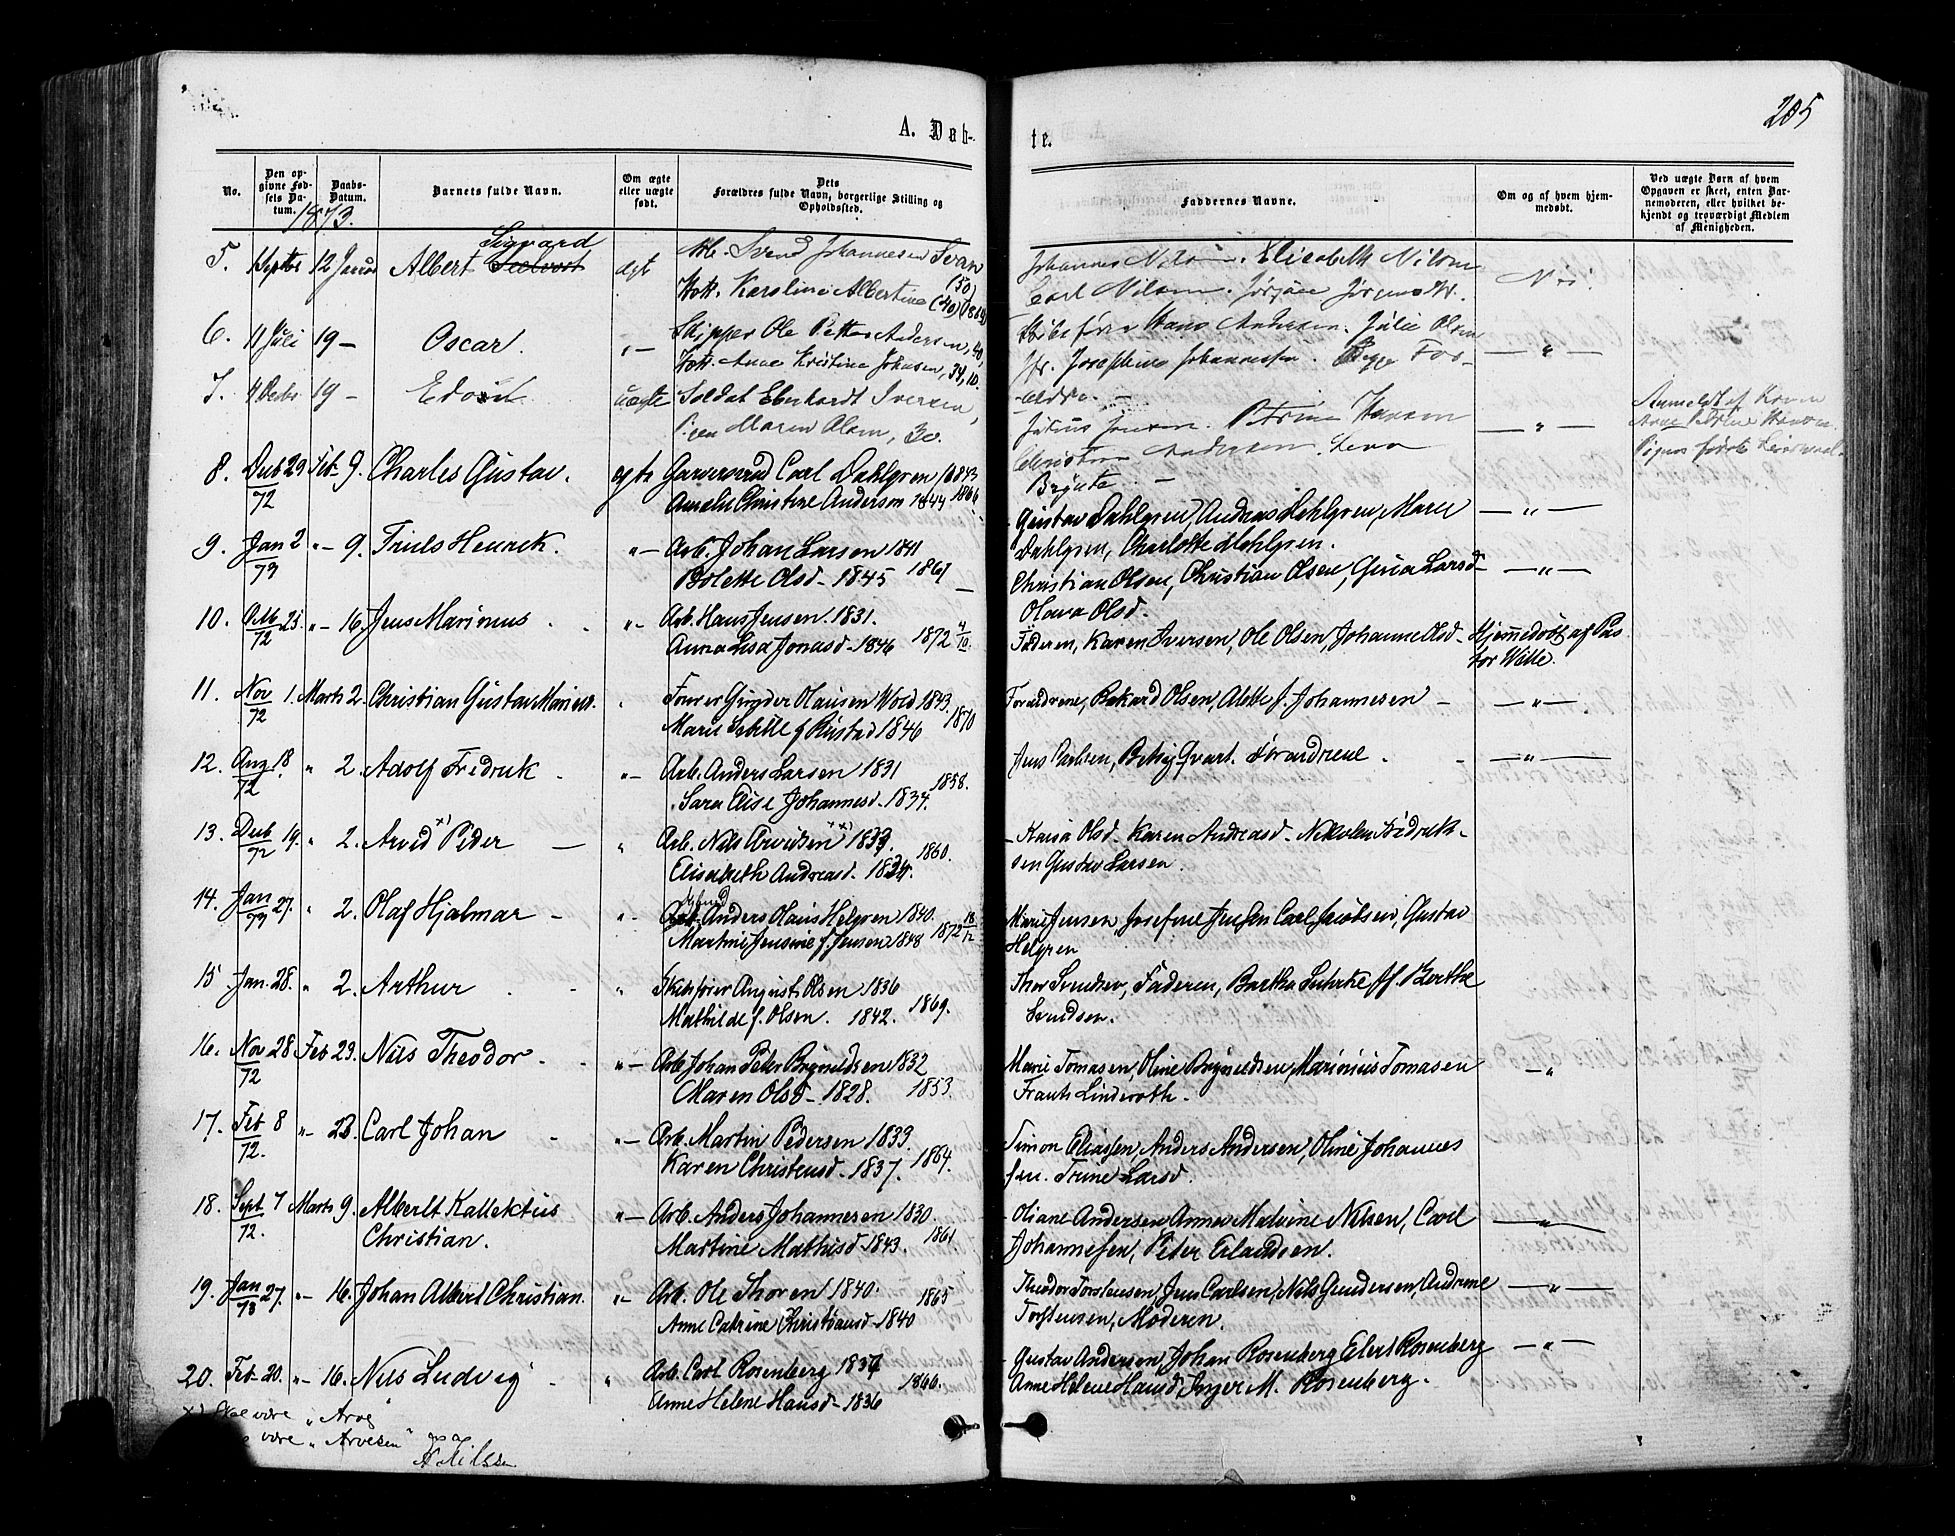 205
A. Døb-
te.
No.
Den op-
givne Fød-
sels Da-
tum.
Daabs-
Datum.
Barnets fulde Navn.
Om ægte
eller uægte
født.
Dets
Forældres fulde Navn, borgerlige Stilling og
Opholdssted.
Faddernes Navne.
Om og af hvem hjem-
medøbt.
Ved uægte Børn af hvem
Opgaven er skeet, enten Bar-
nemoderen, eller hvilket be-
kjendt og troværdigt Medlem
af Menigheden.
1873.
Sigvard
5. 12 Albert ægt Arb. Svend Johannesen Svan
(50)
Karoline Albertine (40)
Johannes Nilsen. Elisabeth Nilsen
Carl Nilsen. Nei.
6. 11 Juli 19 — Oscar. "— Skipper Ole Petter Andersen, 40,
Anne Kristine Johnsen, 34,
Hans Andersen. Julie Olsen
Josephine Johannesen. Begge For-
ældre. — " —
7. 4 19 — uægte Soldat Eberhardt Iversen,
Pigen Maren Olsen, 30.
Julius Jensen. Petrine Hansen
Christian Andersen. — " —
Anmeldt af
8. Deb 29 Feb 9. Charles Gustav. ægte Garversvend Carl Dahlgren 1843
72 Amalie Christine Anderson 1844 1866
Gustav Dahlgren, Andreas Dahlgren, Marie — " —
Dahlgren, Charlotte Mehlgren.
9. Jan 2 "— 9. Truls Henrik. "— Arb. Johan Larsen 1841
73 Bolette Olsd — 1845 1867
Christian Olsen, Christian Olsen, Gina Larsd — " —
Olava Olsd.
10. 72 "— 16. Jens Marinus "— Arb. Hans Jensen. 1831.
Anna Lisa Jonasd — 1846 1872 4/10
Faderen, Karen Iversen, Ole Olsen, Johanne Olsd — Hjemmedøbt af Pas
tor Wille.
11. Nov 1. Marts 2. Christian Gustav Marius
72 Hansen Wold 1843.
Marie f. Rustad 1846 1870
Forældrene, Rikard Olsen, Alette f. Johannesen — — " —
12. Aug 18. " 2. Adolf Fredrik "— Arb. Anders Larsen 1831
72 Sara Elise Johannesd — 1834. 1858.
Jens Paulsen, Betsy Qvart. Forældrene. — " —
13. Deb 19. " 2. Arvid x) Peder — " Arb. Nils Arvidsen xx) 1833.
72 Elisabeth Andreasd. 1834. 1860.
Kaisa Olsd. Karen Andreasd — Nikolai Fredrik-
sen Gustav Larsen.
14. Jan 27. " 2. Olaf Hjalmar — "— Anders Hans Helgren 1840.
73 Martine Jensine f. Jensen 1848 1872 18/12
Marie Jensen, Josefine Jensen Carl Jacobsen, Gustav
Helgren
15 Jan. 28. " 2. Arthur " Skibfører August Olsen 1836
Mathilde f. Olsen. 1842. 1869.
Thor Svendsen, Faderen, Bertha Jf. Berthe
Svendsen.
16. Nov 28 Feb 23. Nils Theodor — "— Arb. Johan Peter Brynildsen 1832
72 Maren Olsd — 1828. 1853
Marie Tomasen, Oline Brynildsen, Marinius Tomasen — "
Frants Linderoth.
17. Feb 8 "— 23. Carl Johan "— Arb. Martin Pedersen 1833.
72. Karen Christensd — 1837. 1864.
Simon Eliassen, Anders Andersen, Oline Johannes
sen. Trine Larsd.
18. Sept 7 Marts 9. Alberlt Kallektius "— Arb. Anders Johannesen 1830.
72. Christian. Martine Mathisd — 1843. 1861.
Oliane Andersen, Anna Malvine Nilsen, Carl — " —
Johannesen, Peter Erlandsen.
19. Jan 27. "— 16. Johan Albert Christian. "— Arb. Ole Thoren 1840. 1865
73 Anne Catrine Christiansd — 1840
Theodor Torstensen, Jens Carlsen, Nils Gundersen, Andrine — " —
Torstensen, Moderen.
20. Feb 20. "— 16. Nils Ludvig " Arb. Carl Rosenberg 1837
Anne Helene Hansd — 1836 1866.
Gustav Andersen, Johan Rosenberg, Elert Rosenberg — " —
Anne Helene Hansd, Inger M. Rosenberg.
x) Skal være "Arve"
være "Arvesen"
Nilssen